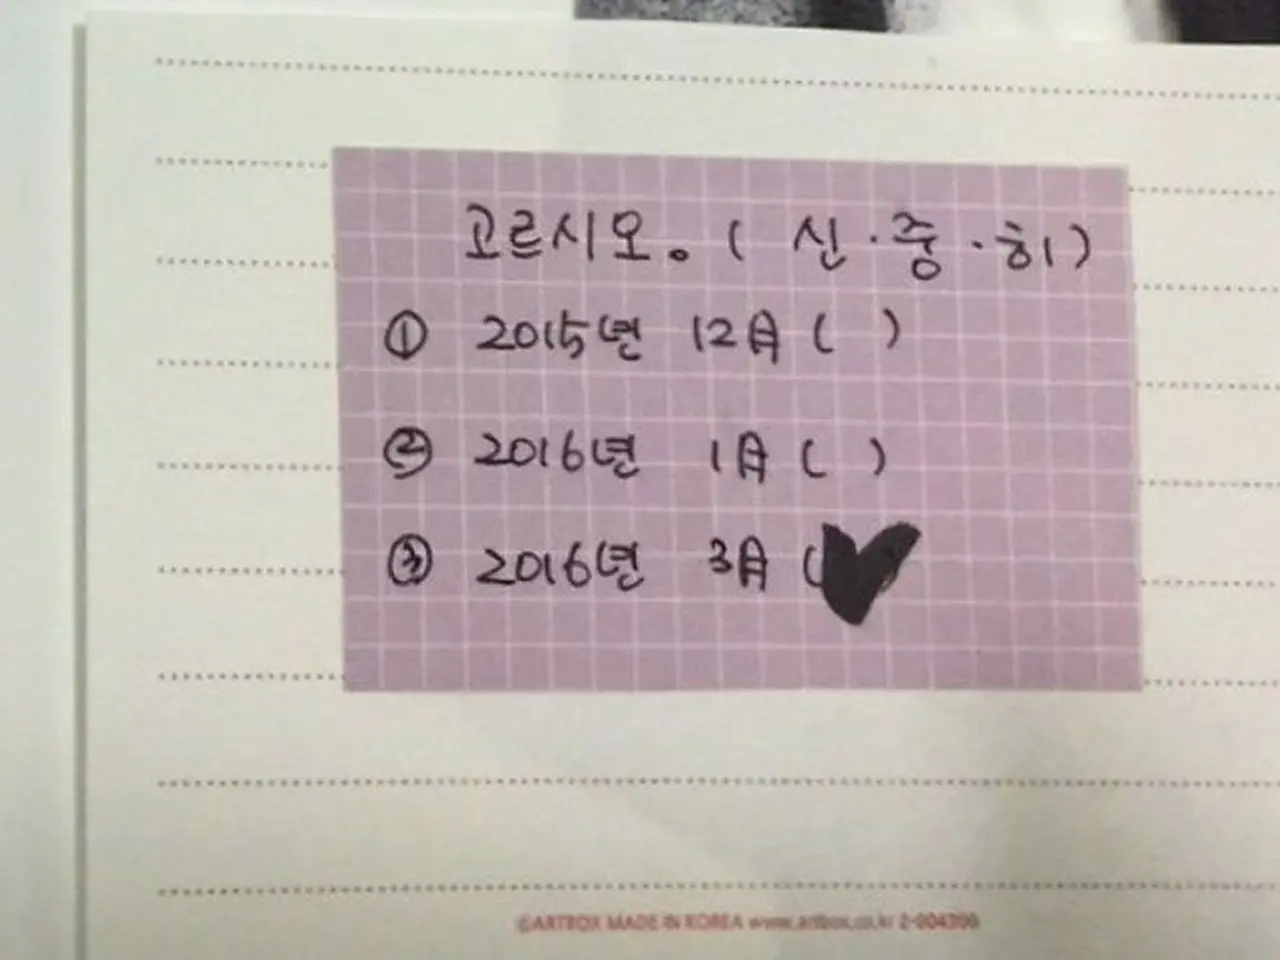 고르시오. ( 신·중·히)
① 2015년 12月 ( )
② 2016년 1月 ( )
③ 2016년 3月 (
©ARTBOX MADE IN KOREA www.artbox.co.kr 2-004300